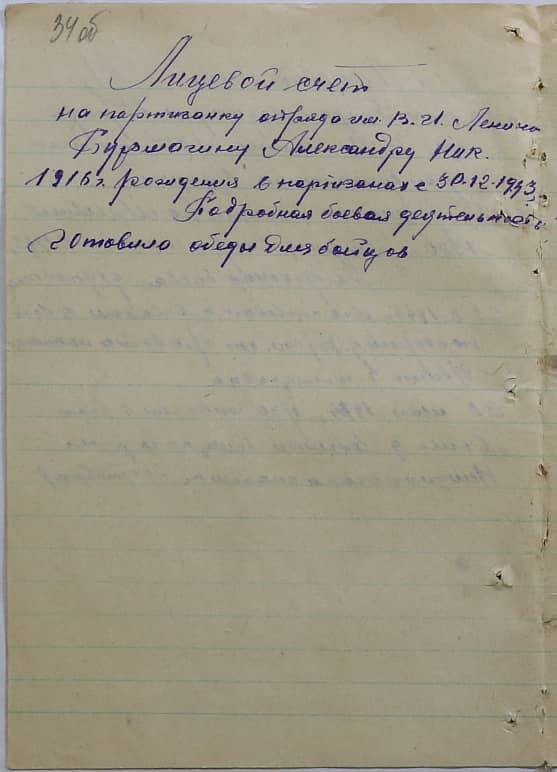 34 об
Лицевой счет
на партизанку отряда им. В. И. Ленина
Александру Ник.
1916 г. рождения в партизанах с 30.12.1943 г.
Подробная боевая деятельность
Готовила обеды для бойцов